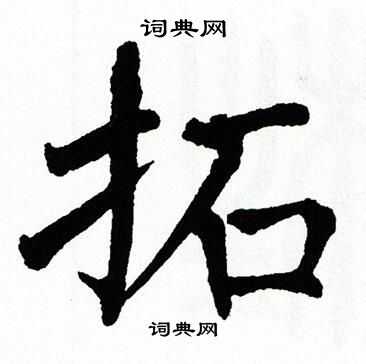 词典网
拓
词典网